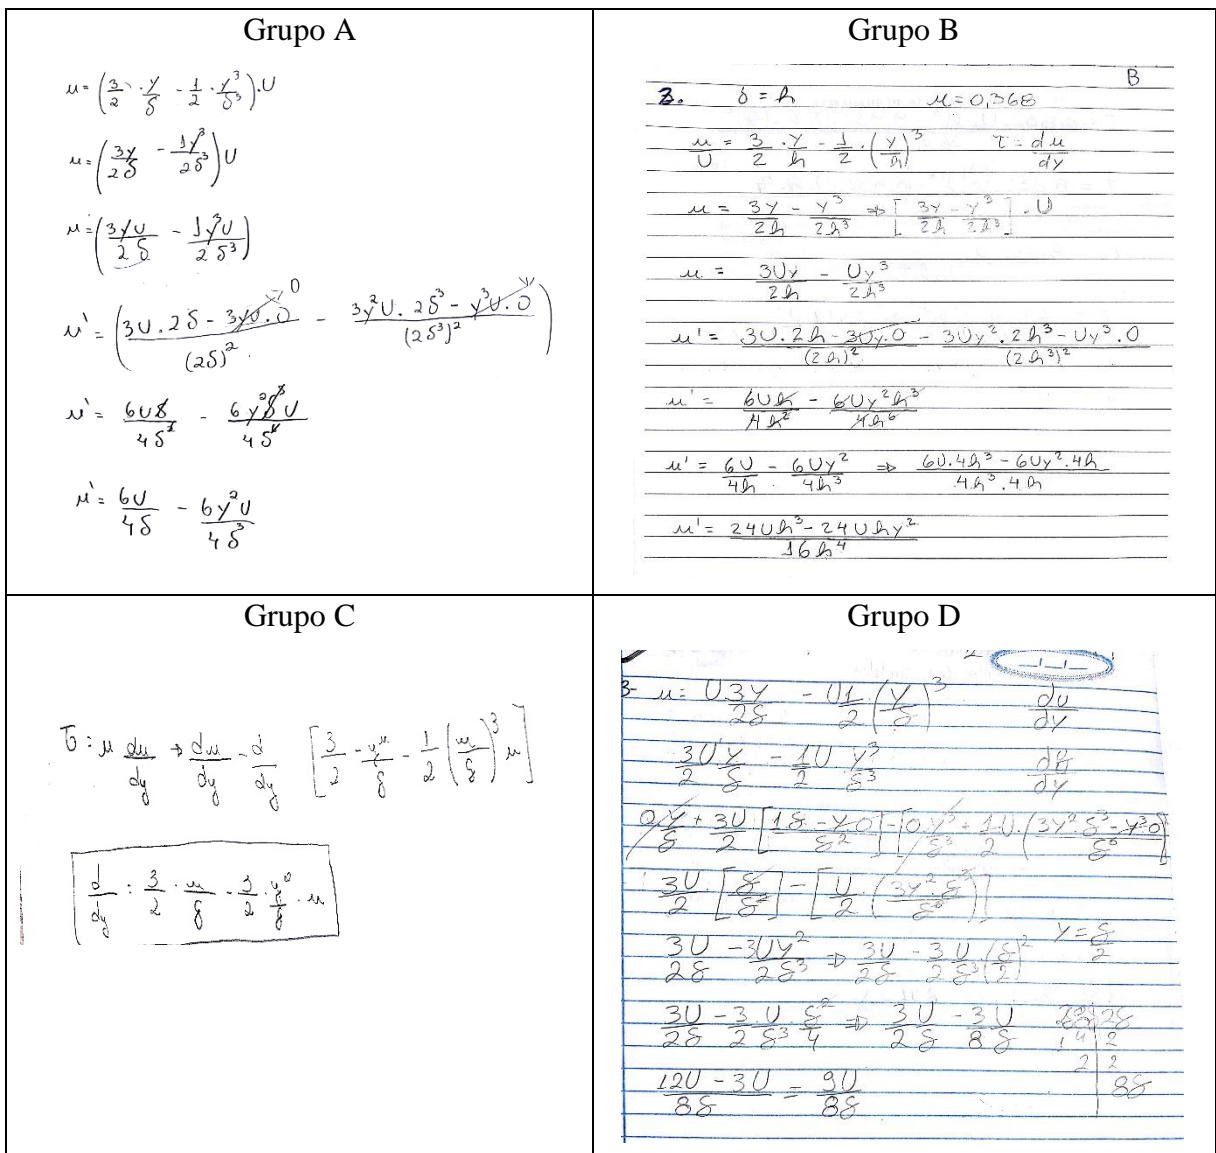 Grupo A
u = (3/2 · y/δ - 1/2 · y³/δ³) · U
u = (3y/2δ - 1y³/2δ³) U
u = (3yU/2δ - 1y³U/2δ³)
u' = (3U.2δ - 3yU.0/(2δ)² - 3y²U.2δ³ - y³U.0/(2δ³)²)
0
u' = 6Uδ/4δ² - 6y²δ³U/4δ⁶
u' = 6U/4δ - 6y²U/4δ³
Grupo B
B
3. δ = h u = 0,368
u/U = 3/2 · y/h - 1/2 · (y/h)³ τ = du/dy
u = 3y/2h - y³/2h³ ⇒ [3y/2h - y³/2h³] · U
u = 3Uy/2h - Uy³/2h³
u' = 3U.2h - 3Uy.0/(2h)² - 3Uy².2h³ - Uy³.0/(2h³)²
u' = 6Uh/4h² - 6Uy²h³/4h⁶
u' = 6U/4h - 6Uy²/4h³ ⇒ 6U.4h³ - 6Uy².4h/4h³.4h
u' = 24Uh³ - 24Uhy²/16h⁴
Grupo C
du/dy ⇒ du/dy - d/dy
d/dy : 3/2 · u/δ - 3/2
Grupo D
3- u = U3y/2δ - U1/2 (y/δ)³ du/dy
3U/2 y/δ - 1U/2 y³/δ³
0 y/δ + 3U/2 [1δ - y.0/δ²] - [0.y³/δ³ + 1U/2 . (3y².δ³ - y³.0/δ⁶)]
3U/2 . [δ/δ²] - [U/2 . (3y².δ³/δ⁶)]
3U/2δ - 3Uy²/2δ³ ⇒ 3U/2δ - 3/2 U/δ³ . (δ/2)² y = δ/2
3U/2δ - 3/2 . U/δ³ . δ²/4 ⇒ 3U/2δ - 3U/8δ
12U - 3U/8δ = 9U/8δ
8δ